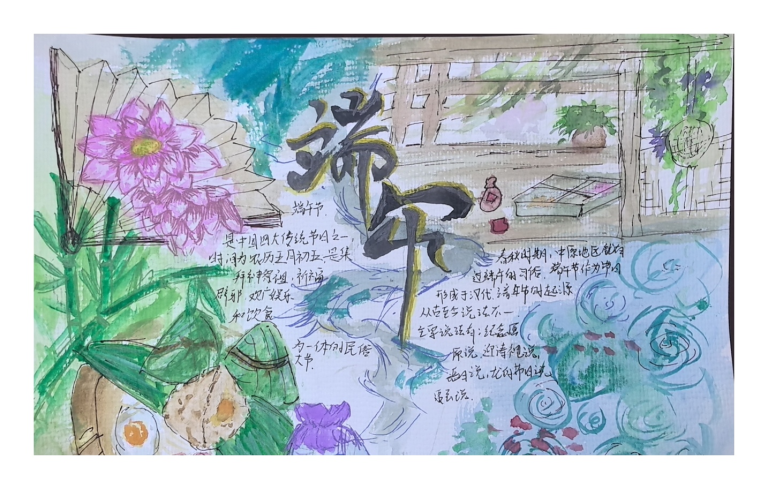 端午
端午节
是中国四大传统节日之一
时间为农历五月初五,是集
拜神祭祖、祈福
辟邪、欢庆娱乐
和饮食
为一体的民俗
大节.
春秋时期,中原地区就有
过端午的习俗,端午节作为节日
形成于汉代,端午节的起源
从古至今说法不一
主要说法有:纪念屈
原说,迎涛神说,
恶日说,龙的节日说,
夏至说.